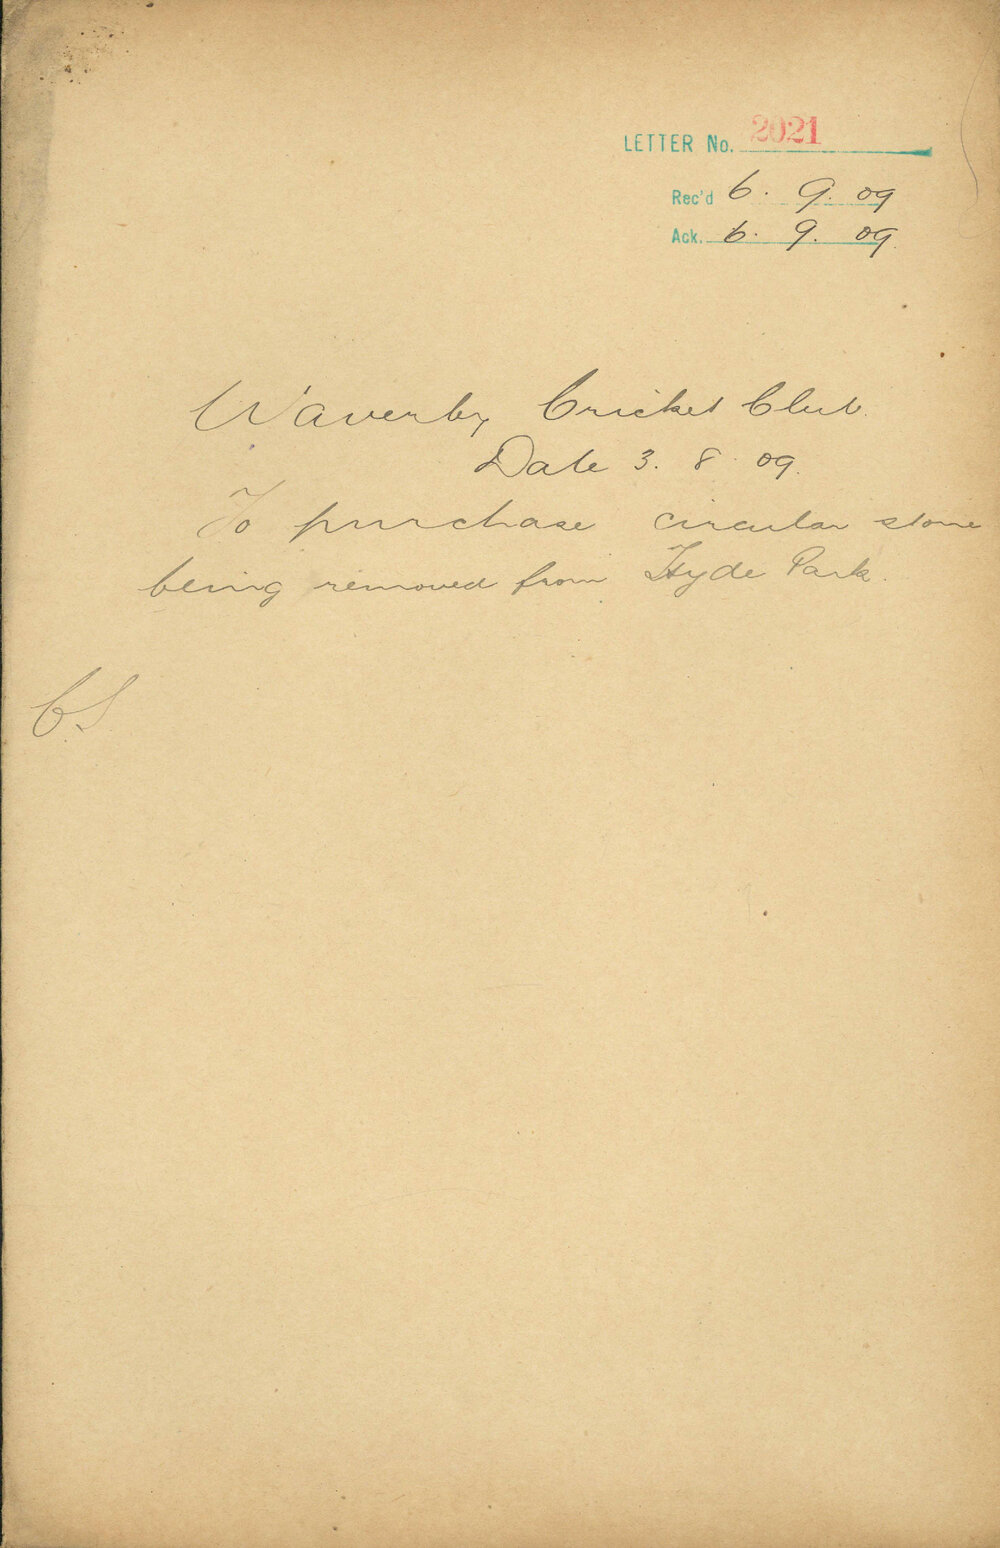 LETTER No. 2021
Rec'd 6. 9. 09
Ack. 6. 9. 09
Waverley Cricket Club.
Date 3. 8. 09.
To purchase circular stone
being removed from Hyde Park.
CS